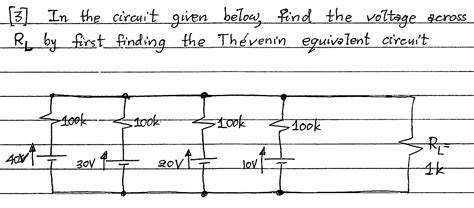 [3] In the circuit given below, find the voltage across
R_L by first finding the Thévenin equivalent circuit
100k 100k 100k 100k
40V 30V 20V 10V
R_L=
1k